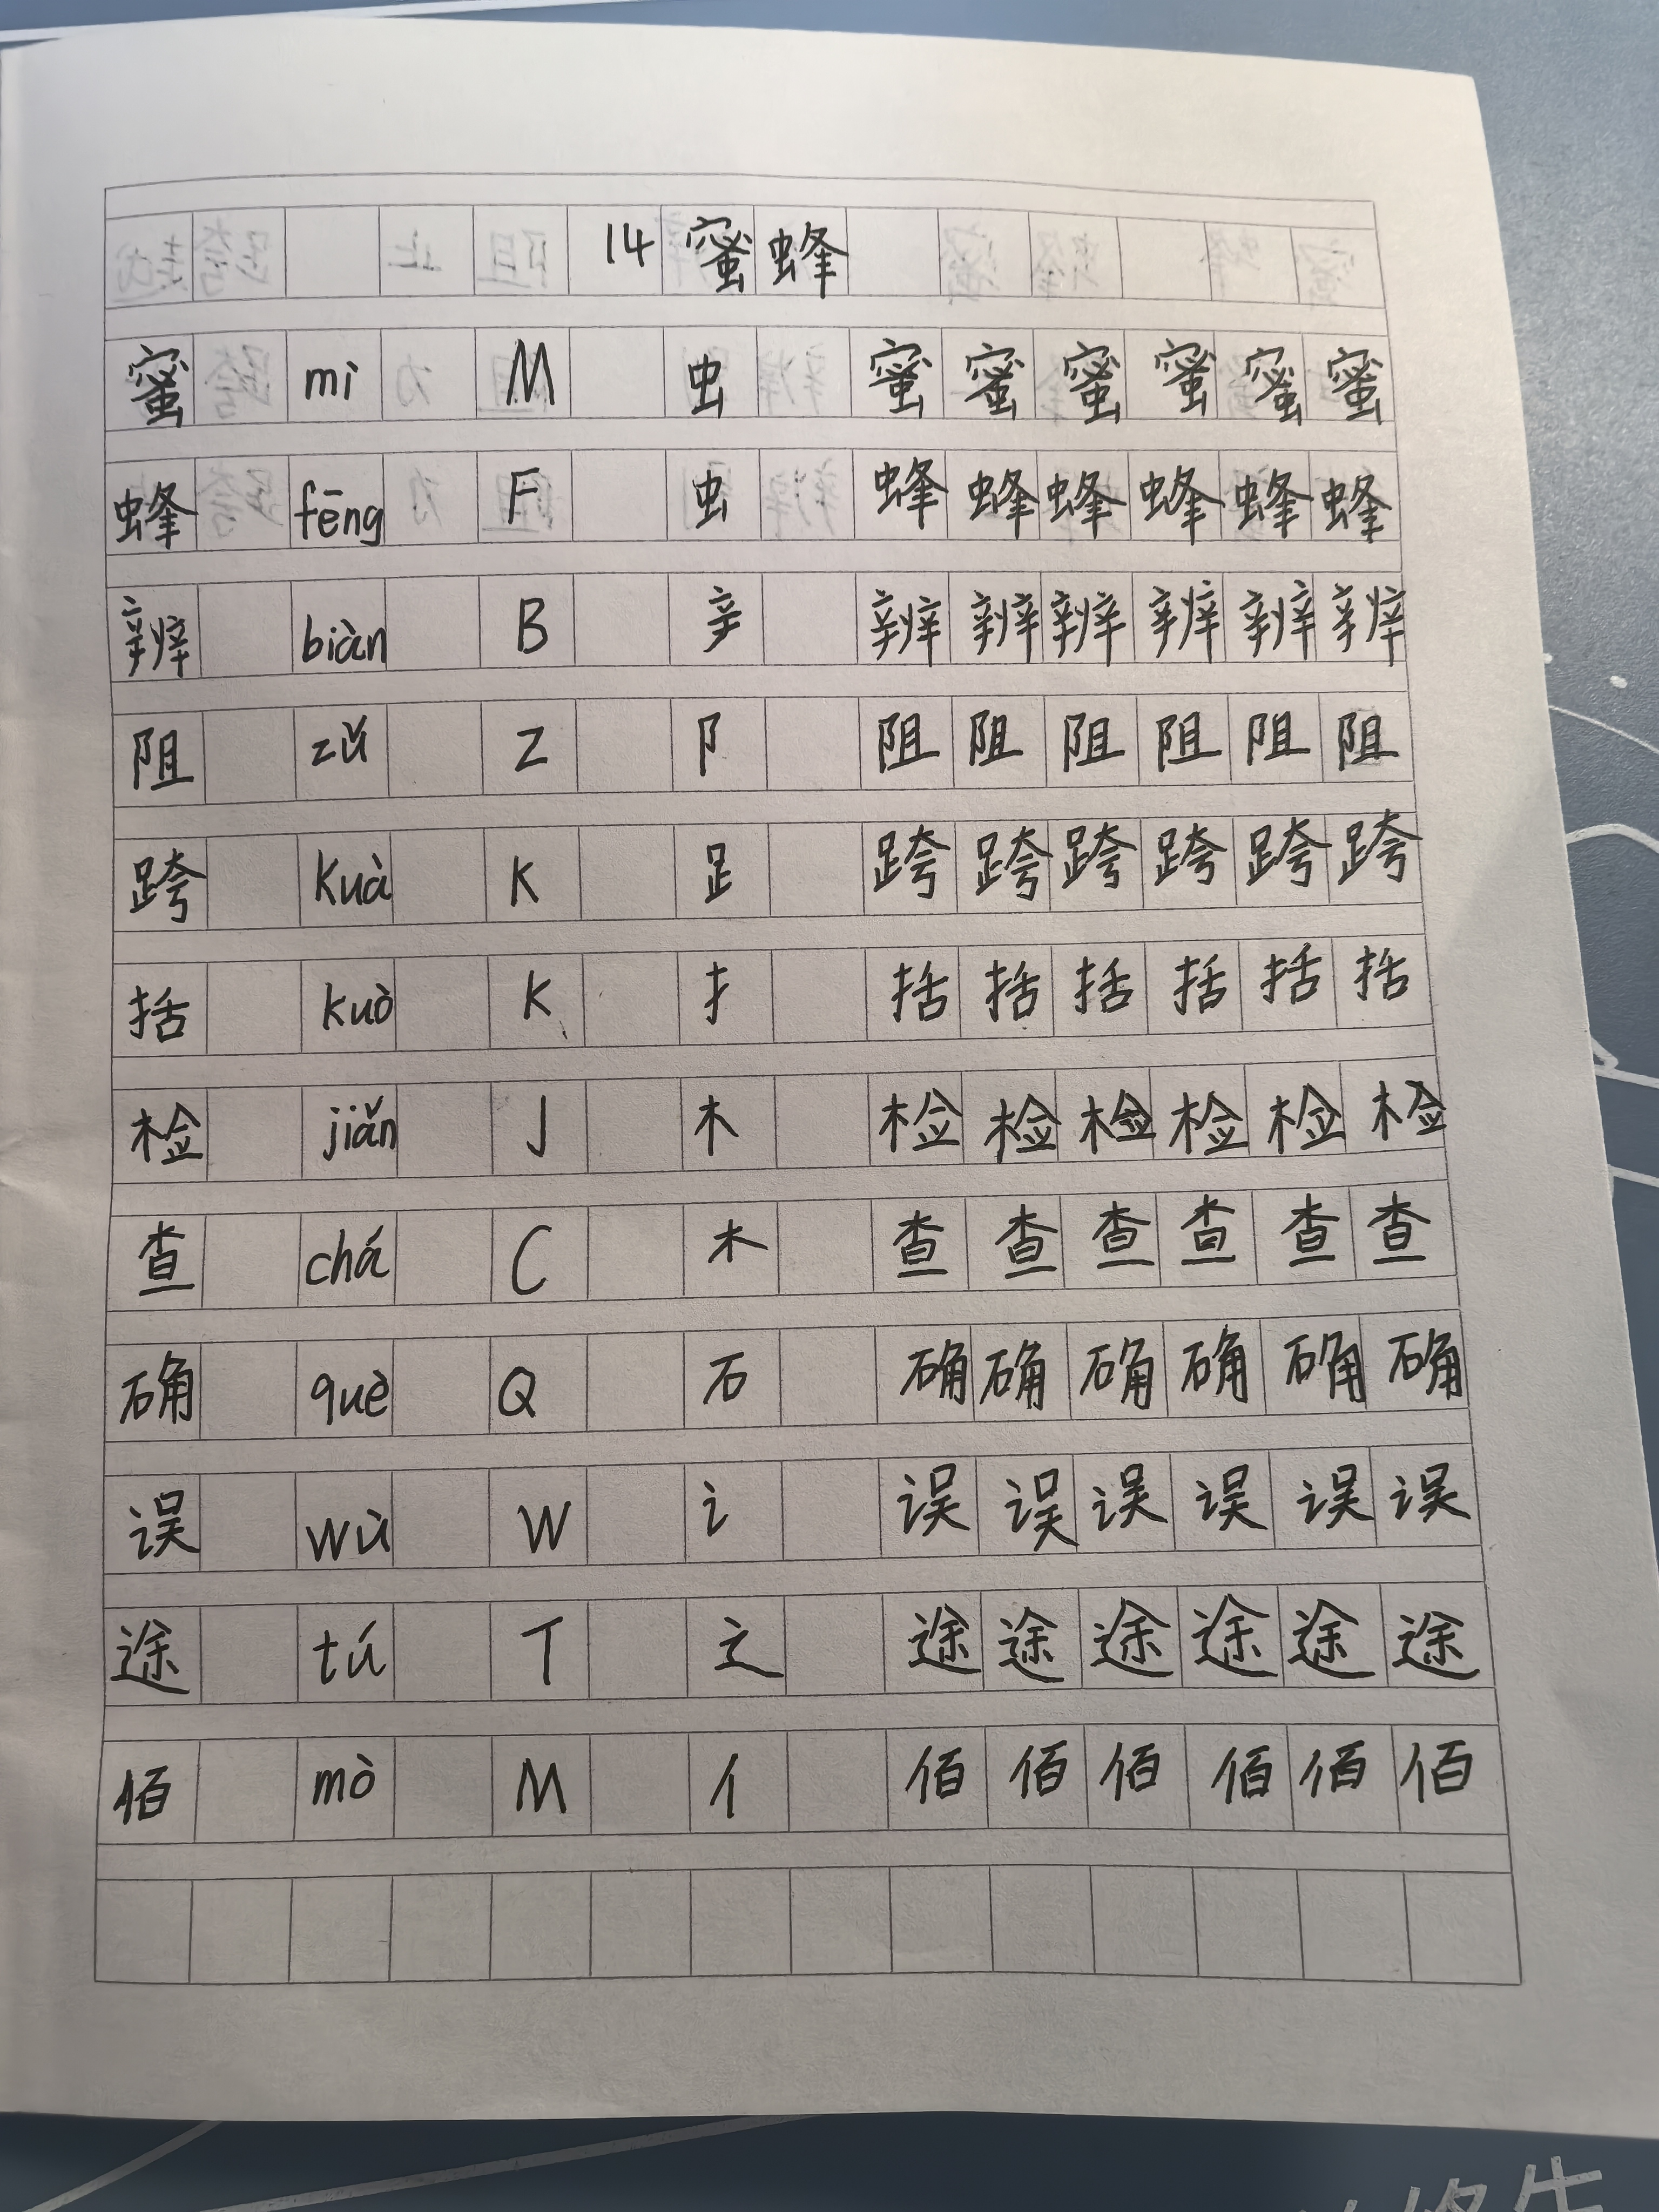 14 蜜蜂
蜜 mì M 虫 蜜 蜜 蜜 蜜 蜜 蜜
蜂 fēng F 虫 蜂 蜂 蜂 蜂 蜂 蜂
辨 biàn B 辛 辨 辨 辨 辨 辨 辨
阻 zǔ Z 阝 阻 阻 阻 阻 阻 阻
跨 kuà K 𧾷 跨 跨 跨 跨 跨 跨
括 kuò K 扌 括 括 括 括 括 括
检 jiǎn J 木 检 检 检 检 检 检
查 chá C 木 查 查 查 查 查 查
确 què Q 石 确 确 确 确 确 确
误 wù W 讠 误 误 误 误 误 误
途 tú T 辶 途 途 途 途 途 途
佰 mò M 亻 佰 佰 佰 佰 佰 佰